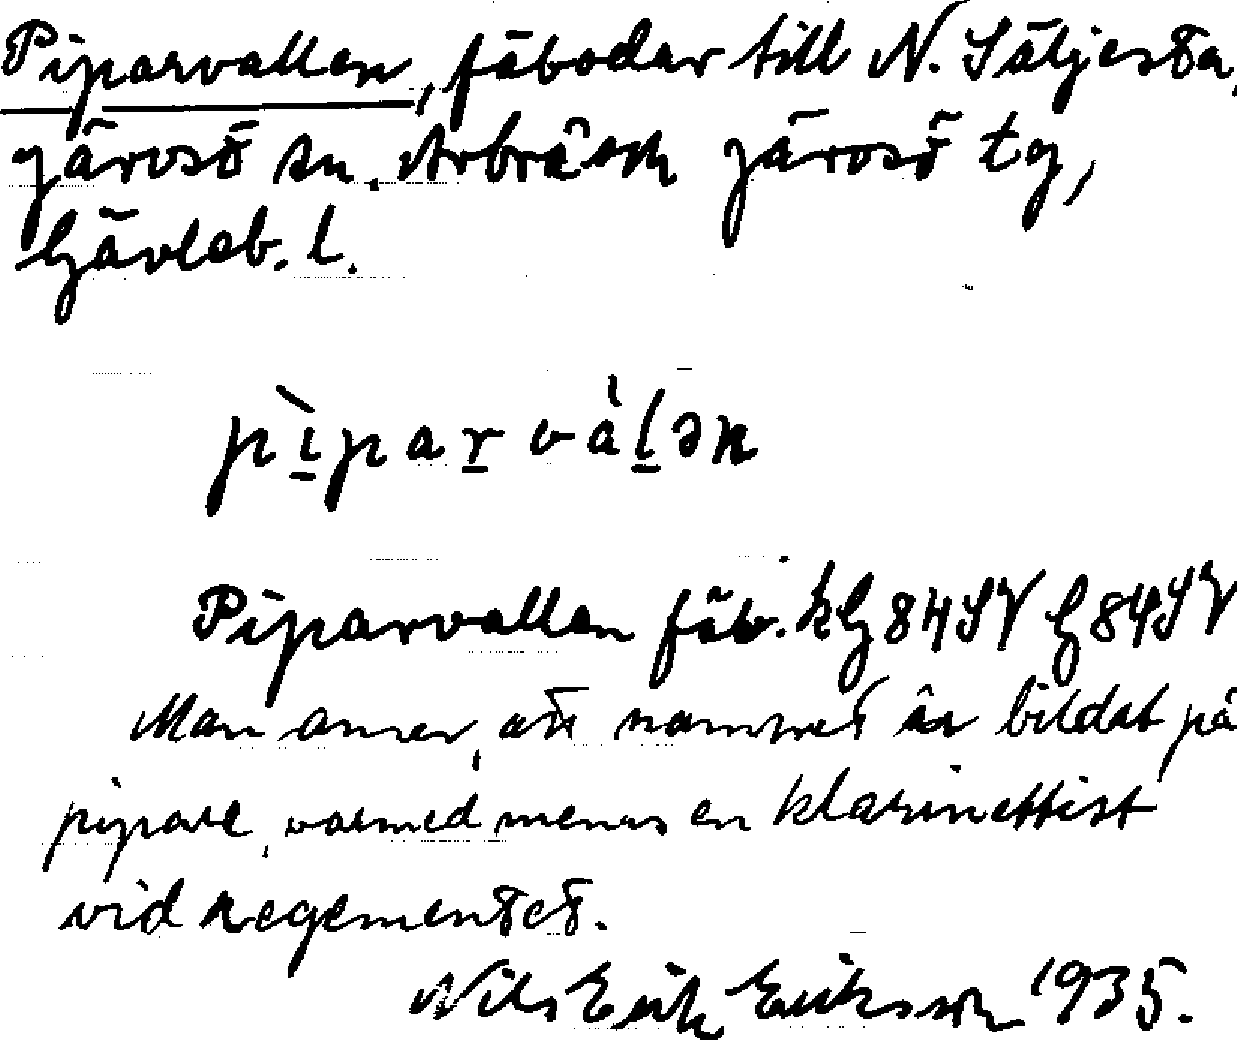 Piparvallen, fäbodar till N. Säljesta,
Järvsö sn. Arbrå och Järvsö tg,
Gävleb. l.
pìpar vàlən
Piparvallen fäb. kG 84SV G 84SV
Man anser, att namnet är bildat på
pipare, varmed menas en klarinettist
vid regementet.
Nils Erik Eriksson 1935.